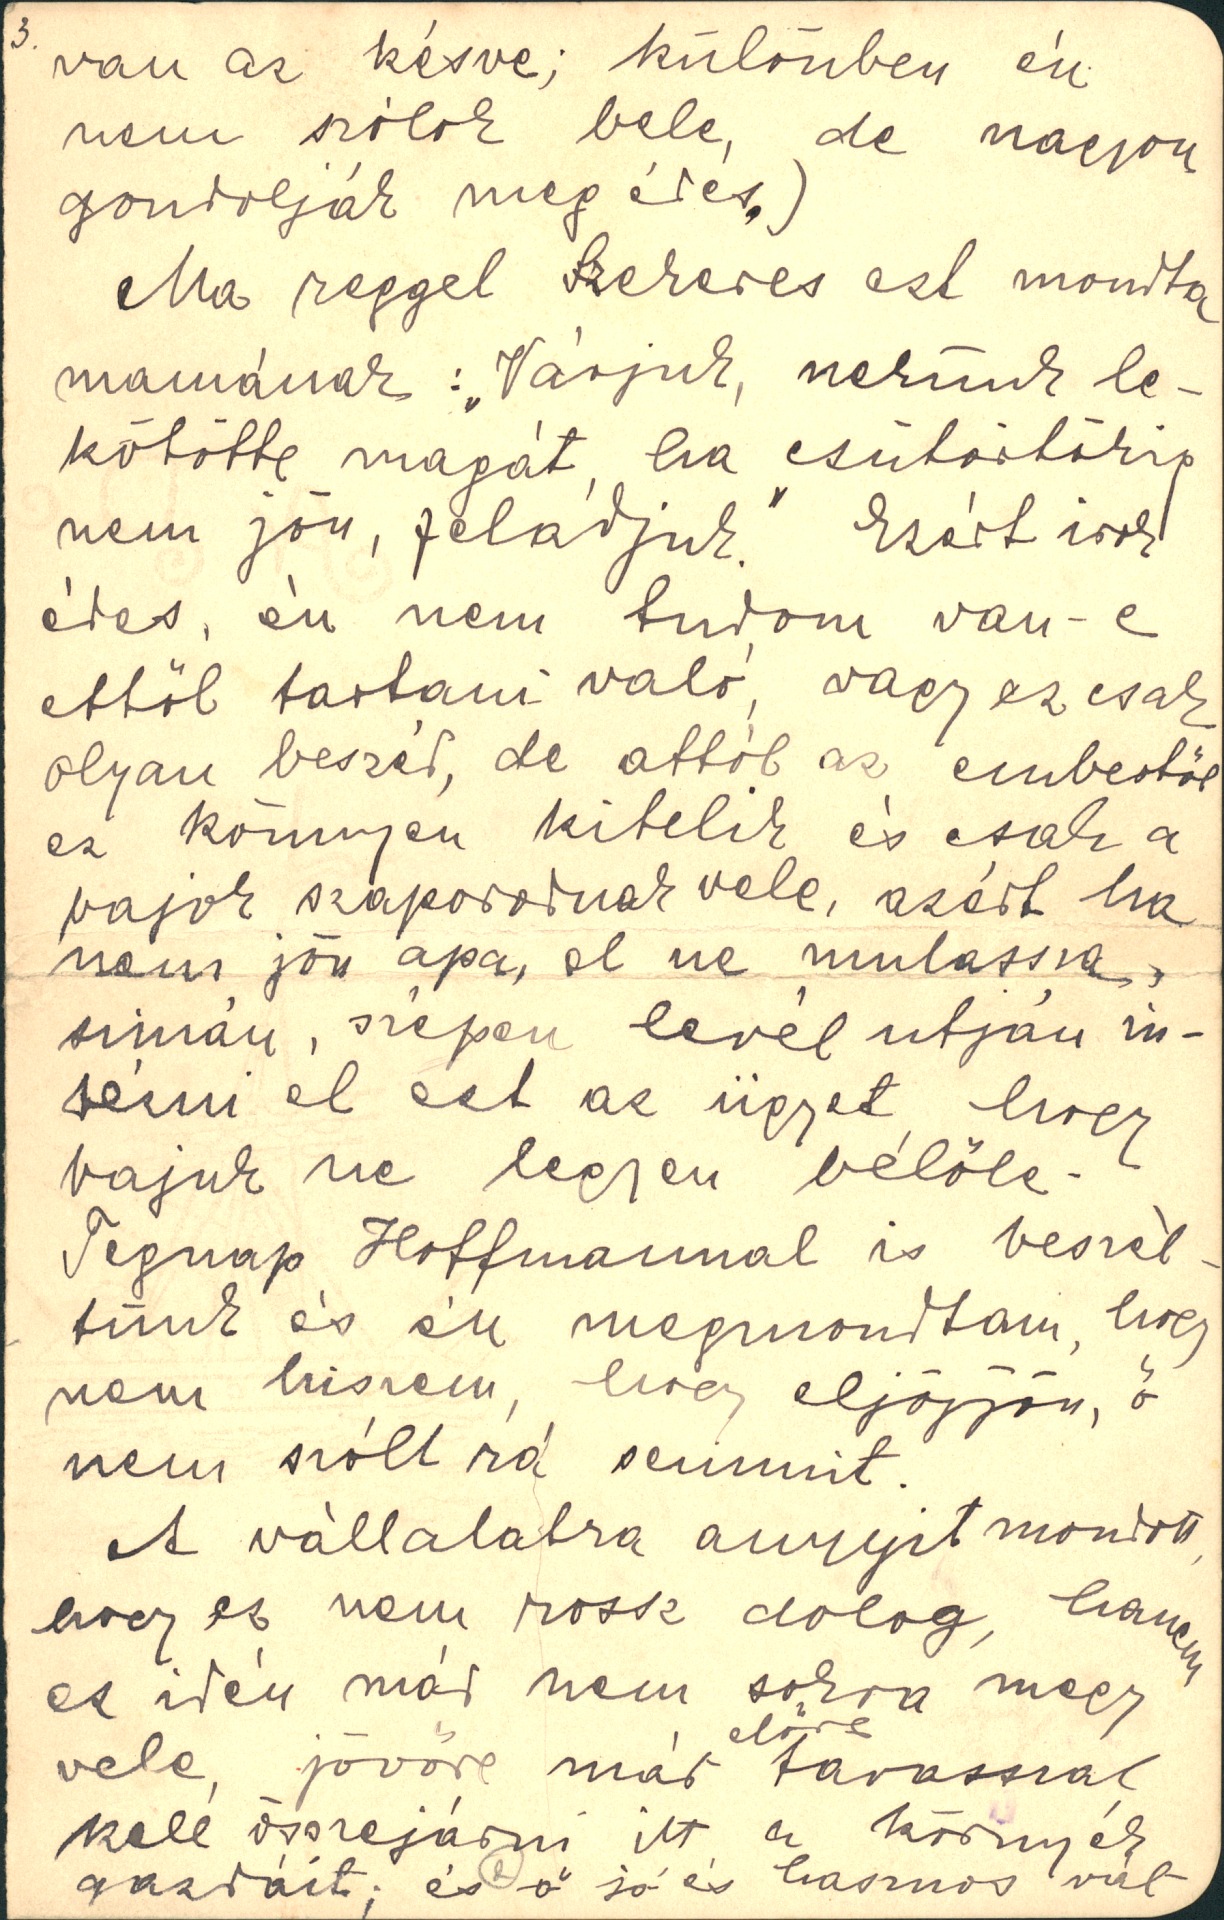 3.
van az késve; különben én
nem szólok bele, de nagyon
gondolják meg édes,)
Ma reggel Szekeres ezt mondta
mamának: „Várjuk, nekünk le-
kötötte magát, ha csütörtökig
nem jön, feladjuk." Ezért irok
édes, én nem tudom van-e
ettöl tartani való, vagy ez csak
olyan beszéd, de attól az embertöl
ez könnyen kitelik és csak a
bajok szaporodnak vele, azért ha
nem jön apa, el ne mulassza,
simán, szépen levél utján in-
tézni el ezt az ügyet, hogy
bajuk ne legyen bélöle-
Tegnap Hoffmannal is beszél-
tünk és én megmondtam, hogy
nem hiszem, hogy eljöjjön, ö
nem szólt rá semmit.
A vállalatra annyit mondott,
hogy ez nem rossz dolog, hanem
ez idén már nem sokra megy
vele, jövöre már elöre tavasszal
kell összejárni itt a környék
gazdáit; és ö jó és hasznos vál-